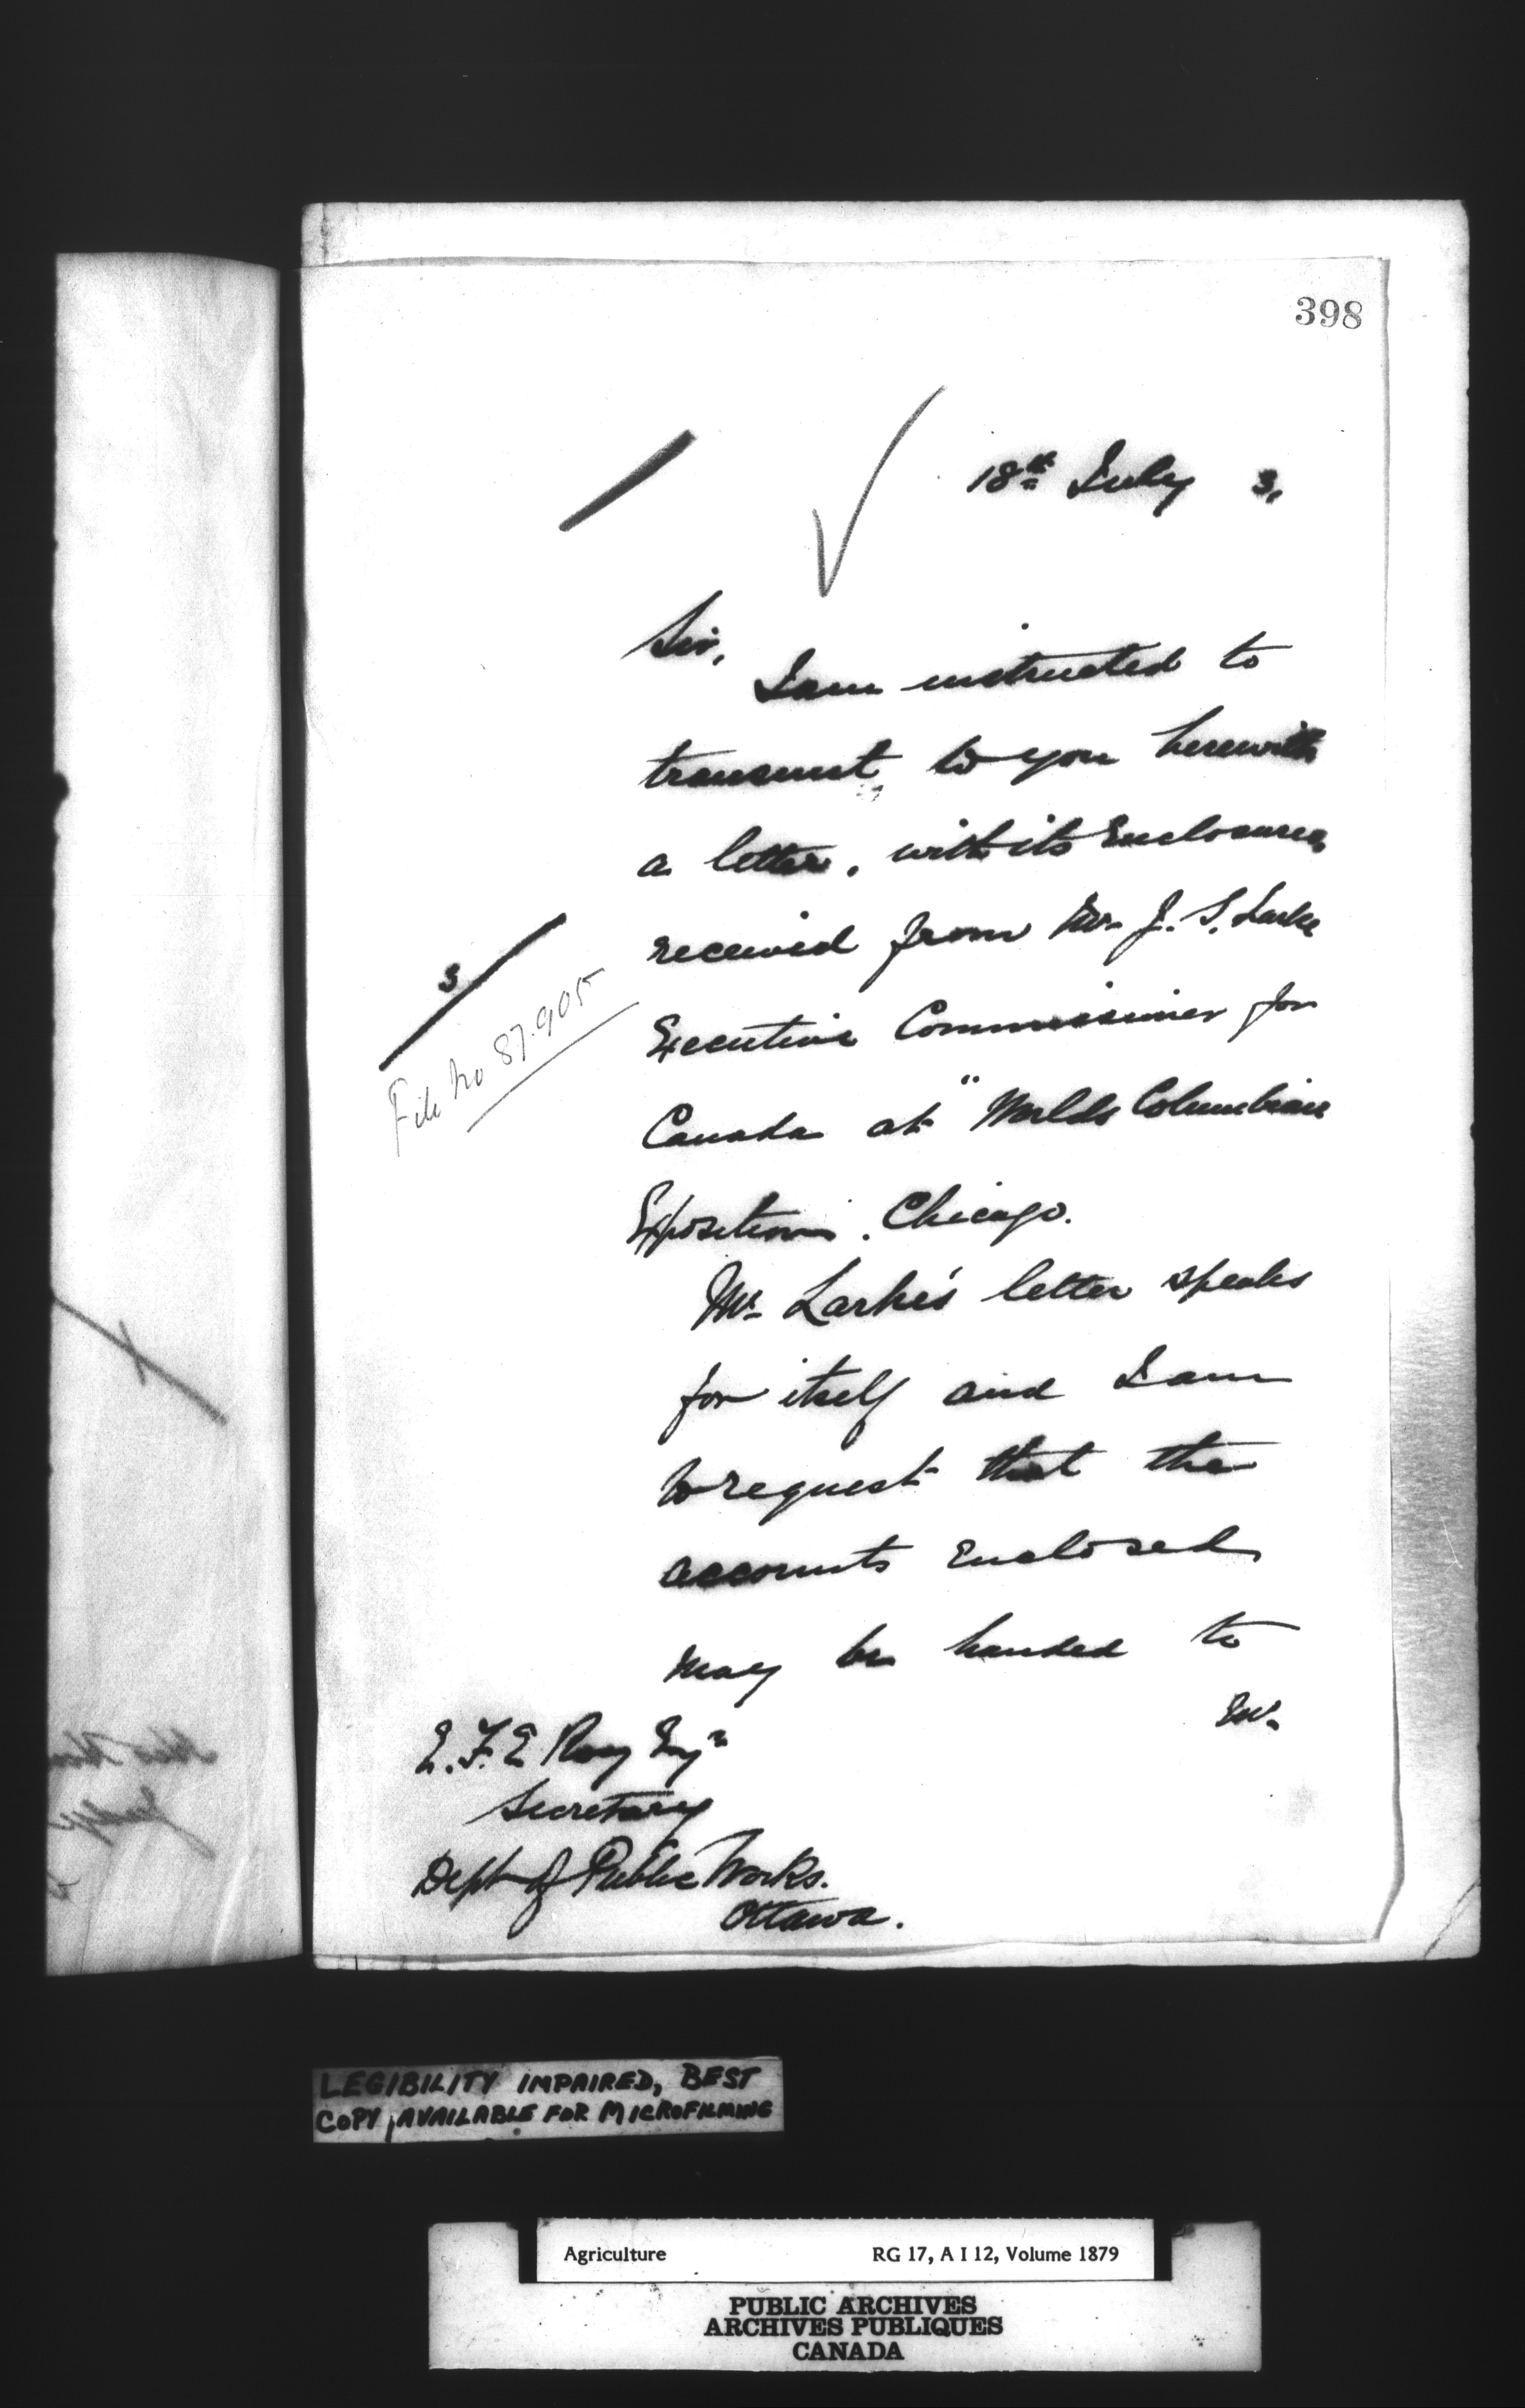 398
18th July 3,
Sir,
I am instructed to
transmit to you herewith
a letter, with its Enclosures,
received from Mr. J. S. Larke
Executive Commissioner for
Canada at "Worlds Columbian
Exposition. Chicago.
3
File No 87.905
Mr. Larke's letter speaks
for itself and I am
to request that the
accounts Enclosed
may be handed to
Mr.
E. F. E Roy Esqr
Secretary
Dept of Public Works.
Ottawa.
LEGIBILITY IMPAIRED, BEST
COPY AVAILABLE FOR MICROFILMING
Agriculture RG 17, A I 12, Volume 1879
PUBLIC ARCHIVES
ARCHIVES PUBLIQUES
CANADA